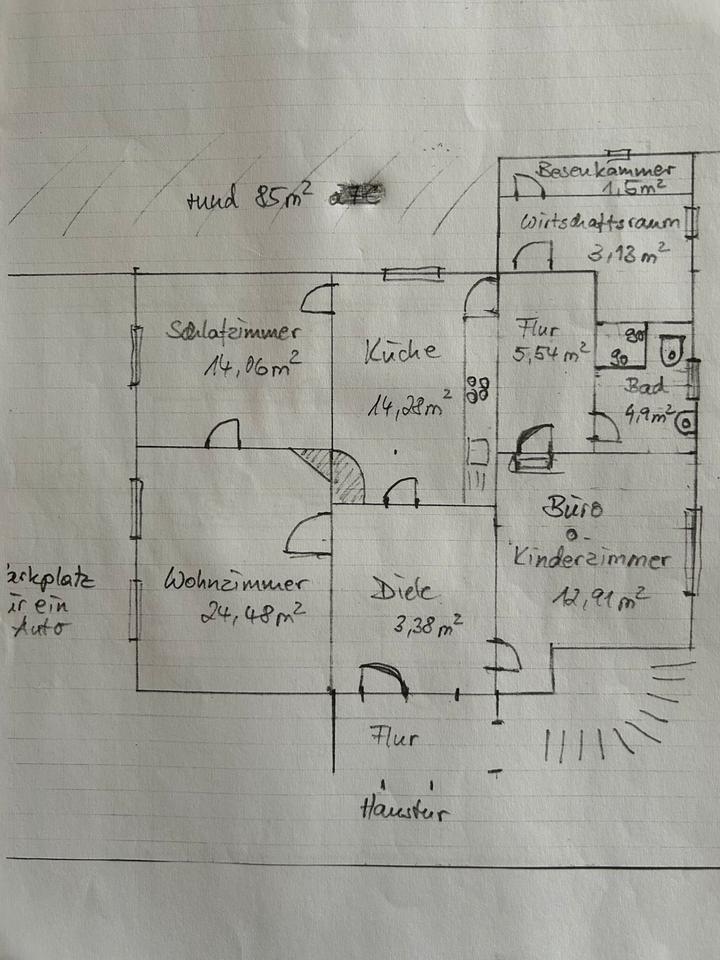 rund 85m²
Besenkammer
1,5m²
Wirtschaftsraum
3,13m²
Schlafzimmer
14,06m²
Küche
14,28m²
Flur
5,54m²
90
90
Bad
4,9m²
Büro
o.
Kinderzimmer
12,91m²
Wohnzimmer
24,48m²
Diele
3,38m²
arkplatz
ür ein
Auto
Flur
Haustür